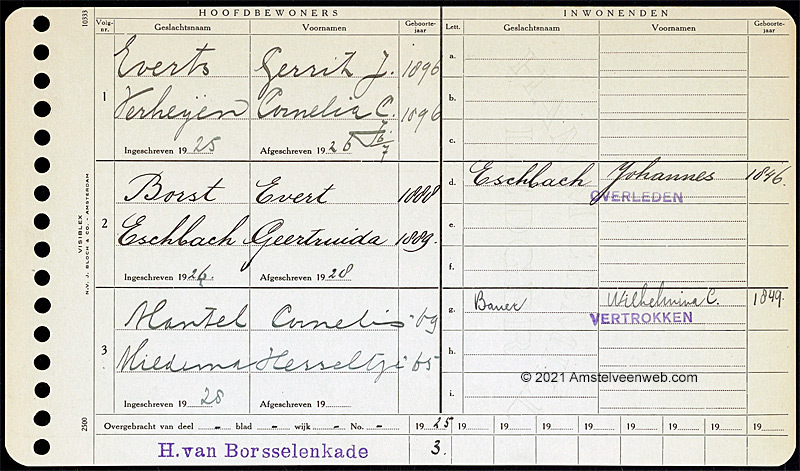 HOOFDBEWONERS INWONENDEN
Volg-nr. Geslachtsnaam Voornamen Geboorte-jaar Lett. Geslachtsnaam Voornamen Geboorte-jaar
10333
1 Everts Gerrit J. 1896 a.
Verheijen Cornelia C. 1896 b.
c.
Ingeschreven 1925 Afgeschreven 1926
2 Borst Evert 1888 d. Eschbach Johannes 1846.
OVERLEDEN
Eschbach Geertruida 1889. e.
f.
Ingeschreven 1926. Afgeschreven 1928
VISIBLEX
N.V. J. BLOCH & CO. - AMSTERDAM
3 Mantel Cornelis -09 g. Bauer Wilhelmina C. 1849.
VERTROKKEN
Miedema Hesseltje -05 h.
i.
Ingeschreven 1928 Afgeschreven 19
© 2021 Amstelveenweb.com
2500
Overgebracht van deel - blad - wijk - No. - 1925 19 19 19 19 19 19 19 19
H. van Borsselenkade 3.